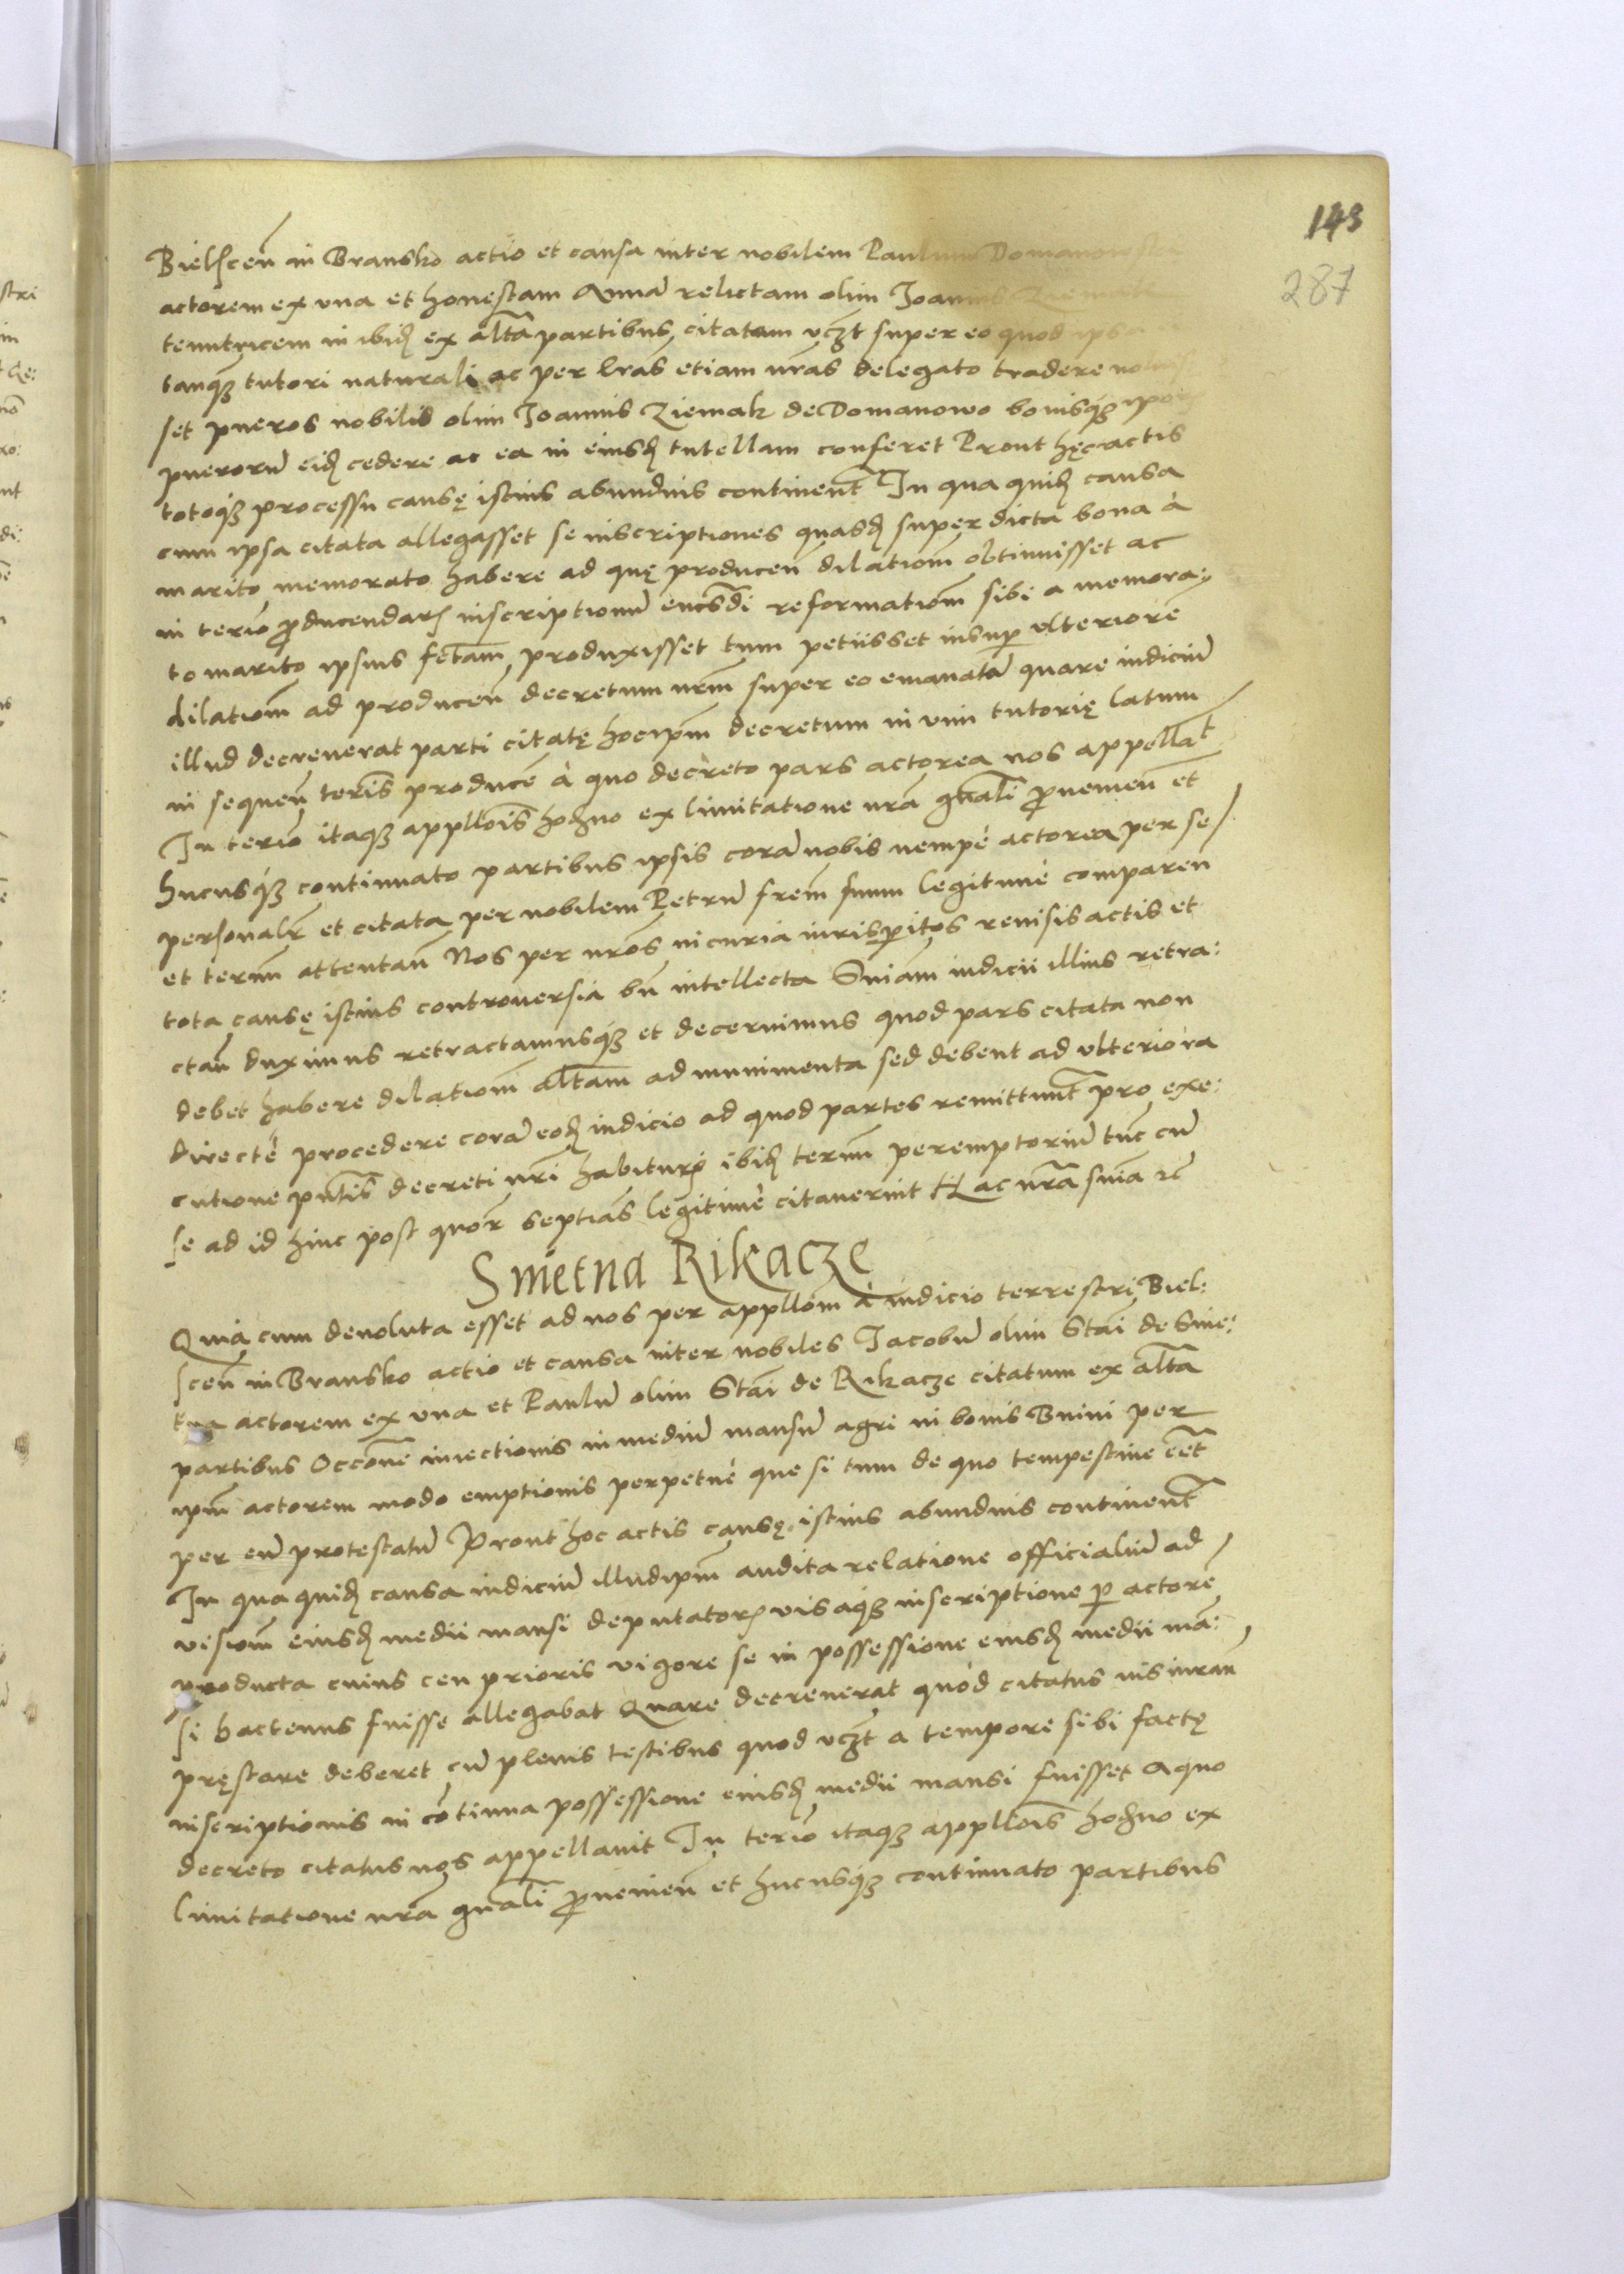 143
287
Bielscen̄ in Bransko actio et causa inter nobilem Paulum Domanowsk
actorem ex una et honestam Annā relictam olim Joannis
tenutricem in ibid ex altā partibus citatam vcꝫt super eo quod ips
tanqꝫ tutori naturali ac per lras etiam nr̄as delegato tradere noluis
set pueros nobilis olim Joannis Ziemak de Domanowo bonisqꝫ ipor
puerorū eid cedere ac ea in eiusd tutellam conferet Prout hęc actis
totoqꝫ processu causę istius abundius continent̄ In qua quid causa
cum ipsa citata allegasset se inscriptiones quasd super dicta bona à
marito memorato habere ad quę producen̄ dilationem̄ obtinuisset ac
in terīo producendar inscriptionū eiusdi reformationem̄ sibi a memora
to marito ipsius fctam produxisset tum petiisset insup ulteriorē
dilationem̄ ad producen̄ decretum nrm̄ super eo emanatū quare iudiciū
illud decreuerat parti citatę hoc ipm̄ decretum in vim tutorię latum
in sequen̄ teris̄ producē à quo decreto pars actorea nos appellat̄
In terīo itaqꝫ appllōis hodno ex limitatione nrā gn̄ali prouenien̄ et
hucusqꝫ continuato partibus ipsis corā nobis nempè actorea per se
personalr̄ et citata per nobilem Petrū frem̄ suum legitimè comparen̄
et term̄ attentan̄ Nos per nros̄ in curia iurisperitos reuisis actis et
tota causę istius controuersia bn̄ intellecta Sniām iudicii illius retra:
ctan̄ duximus retractamusqꝫ et decernimus quod pars citata non
debet habere dilationem̄ altam̄ ad munimenta sed debent ad ulteriora
directè procedere corā eod iudicio ad quod partes remittunt̄ pro exe:
cutione pntis̄ decreti nrī habitur ibid term̄ peremptoriū tūc cū
se ad id hinc post quor septiās legitimè citauerint Hac nrā sniā ꝛc̄
Smetna Rikacze
Quia cum deuoluta esset ad nos per appllōm à iudicio terrestri Biel:
scen̄ in Bransko actio et causa inter nobiles Jacobū olim Stāi de Sme:
tna actorem ex una et Paulū olim Stāi de Rikacze citatum ex altā
partibus Occōne iniectionis in mediū mansū agri in bonis Bnini per
ipm̄ actorem modo emptionis perpetuè que si tum de quo tempestiue ēet
per eū protestatū Prout hoc actis causę istius abundius continent̄
In qua quid causa iudiciū illud ipm̄ audita relatione officialiū ad
visionem̄ eiusd medii mansi deputator visaqꝫ inscriptione p actorē
producta cuius ceu prioris vigore se in possessione eiusd medii mā:
si hactenus fuisse allegabat Quare decreuerat quòd citatus iusiuran
pręstare deberet cū plenis testibus quod vcꝫt a tempore sibi factę
inscriptionis in cōtinua possessione eiusd medii mansi fuisset A quo
decreto citatus nos appellauit In terīo itaqꝫ appllōis hodno ex
limitatione nrā gnālī prouenien̄ et hucusqꝫ continuato partibus